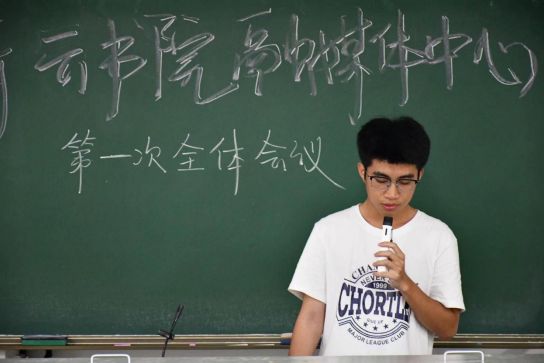 云书院高帆媒体中心
第一次全体会议
NEVER
1999
CHORTLE
MAJOR LEAGUE CLUB